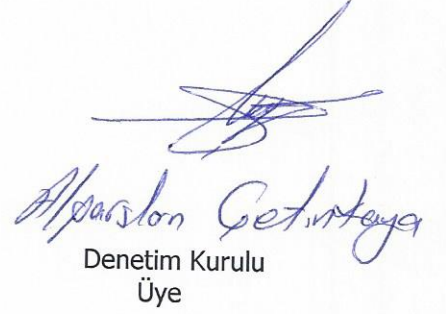 Alparslan Çetinkaya
Denetim Kurulu
Üye